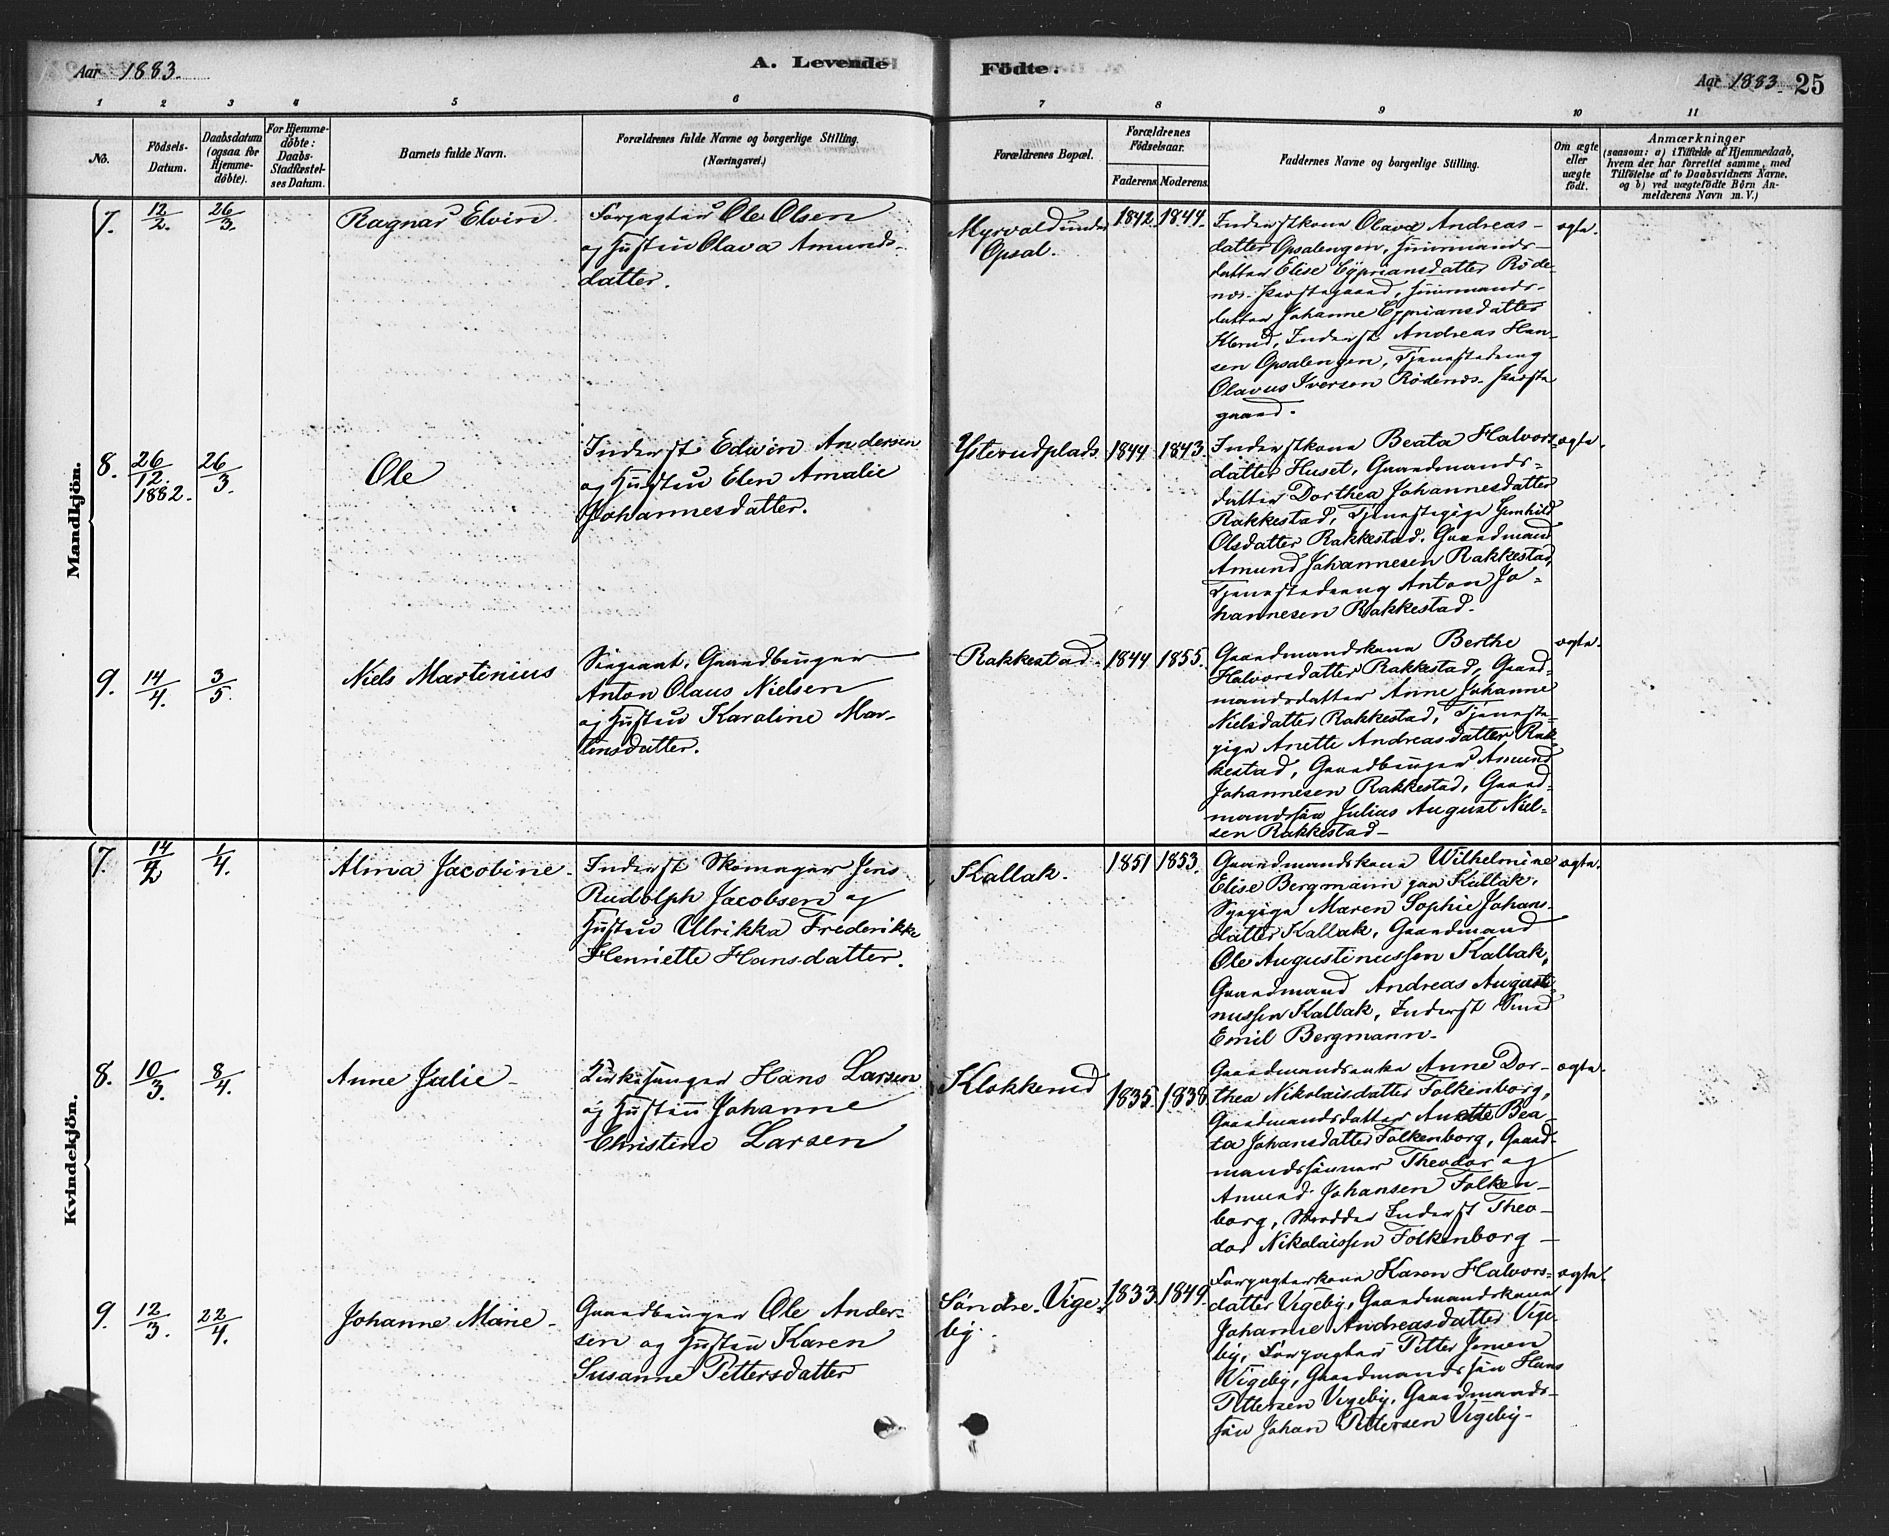 Aar 1883.
A. Levende Födte.
Aar 1883. 25
1 2 3 4 5 6 7 8 9 10 11
No.
Födsels-
Datum.
Daabsdatum
(ogsaa for
Hjemme-
döbte).
For Hjemme-
döbte:
Daabs-
Stadfæstel-
ses Datum.
Barnets fulde Navn.
Forældrenes fulde Navne og borgerlige Stilling.
(Næringsvei.)
Forældrenes Bopæl.
Forældrenes
Födselsaar.
Faderens. Moderens.
Faddernes Navne og borgerlige Stilling.
Om ægte
eller
uægte
födt.
Anmærkninger
(saasom: a) i Tilfælde af Hjemmedaab,
hvem der har forrettet samme, med
Tilföielse af to Daabsvidners Navne.
og b) ved uægtefödte Börn An-
melderens Navn m. V.)
Mandkjön.
7.
12/2.
26/3.
Ragnar Elvin
Forpagter Ole Olsen
og Hustru Olava Amunds-
datter.
Myrvold under
Opsal.
1842. 1844.
Inderstkone Olava Andreas-
datter Opsalengen, Huusmands-
datter Elise Cypriansdatter Röde-
næs Præstegaard, Huusmands-
datter Johanne Cypriansdatter
Klerud, Inderst Andreas Han-
sen Opsalengen, Tjenestedreng
Olavus Iversen Rödenæs Præste
gaard.
ægte.
8.
26/12.
1882.
26/3.
Ole
Inderst Edwin Andersen
og Hustru Elen Amalie
Johannesdatter.
Ysterudplads
1844 1843.
Inderstkone Beata Halvors-
datter Huset, Gaardmands-
datter Dorthea Johannesdatter
Rakkestad, Tjenestepige Gunhild
Olsdatter Rakkestad. Gaardmand
Amund Johannesen Rakkestad,
Tjenestedreng Anton Jo-
hannesen Rakkestad.
ægte.
9.
14/4.
3/5.
Niels Martinius
Sergeant, Gaardbruger
Anton Olaus Nielsen
og Hustru Karoline Mar-
tinsdatter.
Rakkestad.
1844 1855.
Gaardmandskone Berthe
Halvorsdatter Rakkestad, Gaard-
mandsdatter Anne Johanne
Nielsdatter Rakkestad, Tjeneste-
pige Anette Andreasdatter Rak-
kestad, Gaardbruger Amund
Johannesen Rakkestad, Gaard-
mandssön Julius August Niel-
sen Rakkestad-
ægte.
Kvindekjön.
7.
14/2
1/4.
Alma Jacobine.
Inderst Skomager Jens
Rudolph Jacobsen og
Hustru Ulrikka Frederikke
Henriette Hansdatter.
Kallak.
1851 1853.
Gaardmandskone Wilhelmine
Elise Bergmann paa Kallak,
Sypige Maren Sophie Johans-
datter Kallak, Gaardmand
Ole Augustinussen Kallak,
Gaardmand Andreas Augusti-
nussen Kallak, Inderst Smed
Emil Bergmann-
ægte.
8.
10/3.
8/4.
Anne Julie-
Kirkesanger Hans Larsen
og Hustru Johanne
Christine Larsen
Klokkerud
1835. 1838.
Gaardmandsenke Anne Dor-
thea Nikolaisdatter Folkenborg,
Gaardmandsdatter Anette Bea-
ta Johansdatter Folkenborg, Gaard-
mandssönner Theodor og
Amund Johansen Folken-
borg, Skrædder Inderst Theo-
dor Nikolaissen Folkenborg-
ægte.
9.
12/3.
22/4.
Johanne Marie-
Gaardbruger Ole Ander-
sen og Hustru Karen
Susanne Pettersdatter
Söndre Vige-
by.
1833. 1849.
Forpagterkone Karen Halvors-
datter Vigeby, Gaardmandskone
Johanne Andreasdatter Vige-
by, Forpagter Petter Jensen
Vigeby, Gaardmandssön Hans
Pettersen Vigeby, Gaardmands-
sön Johan Pettersen Vigeby-
ægte.